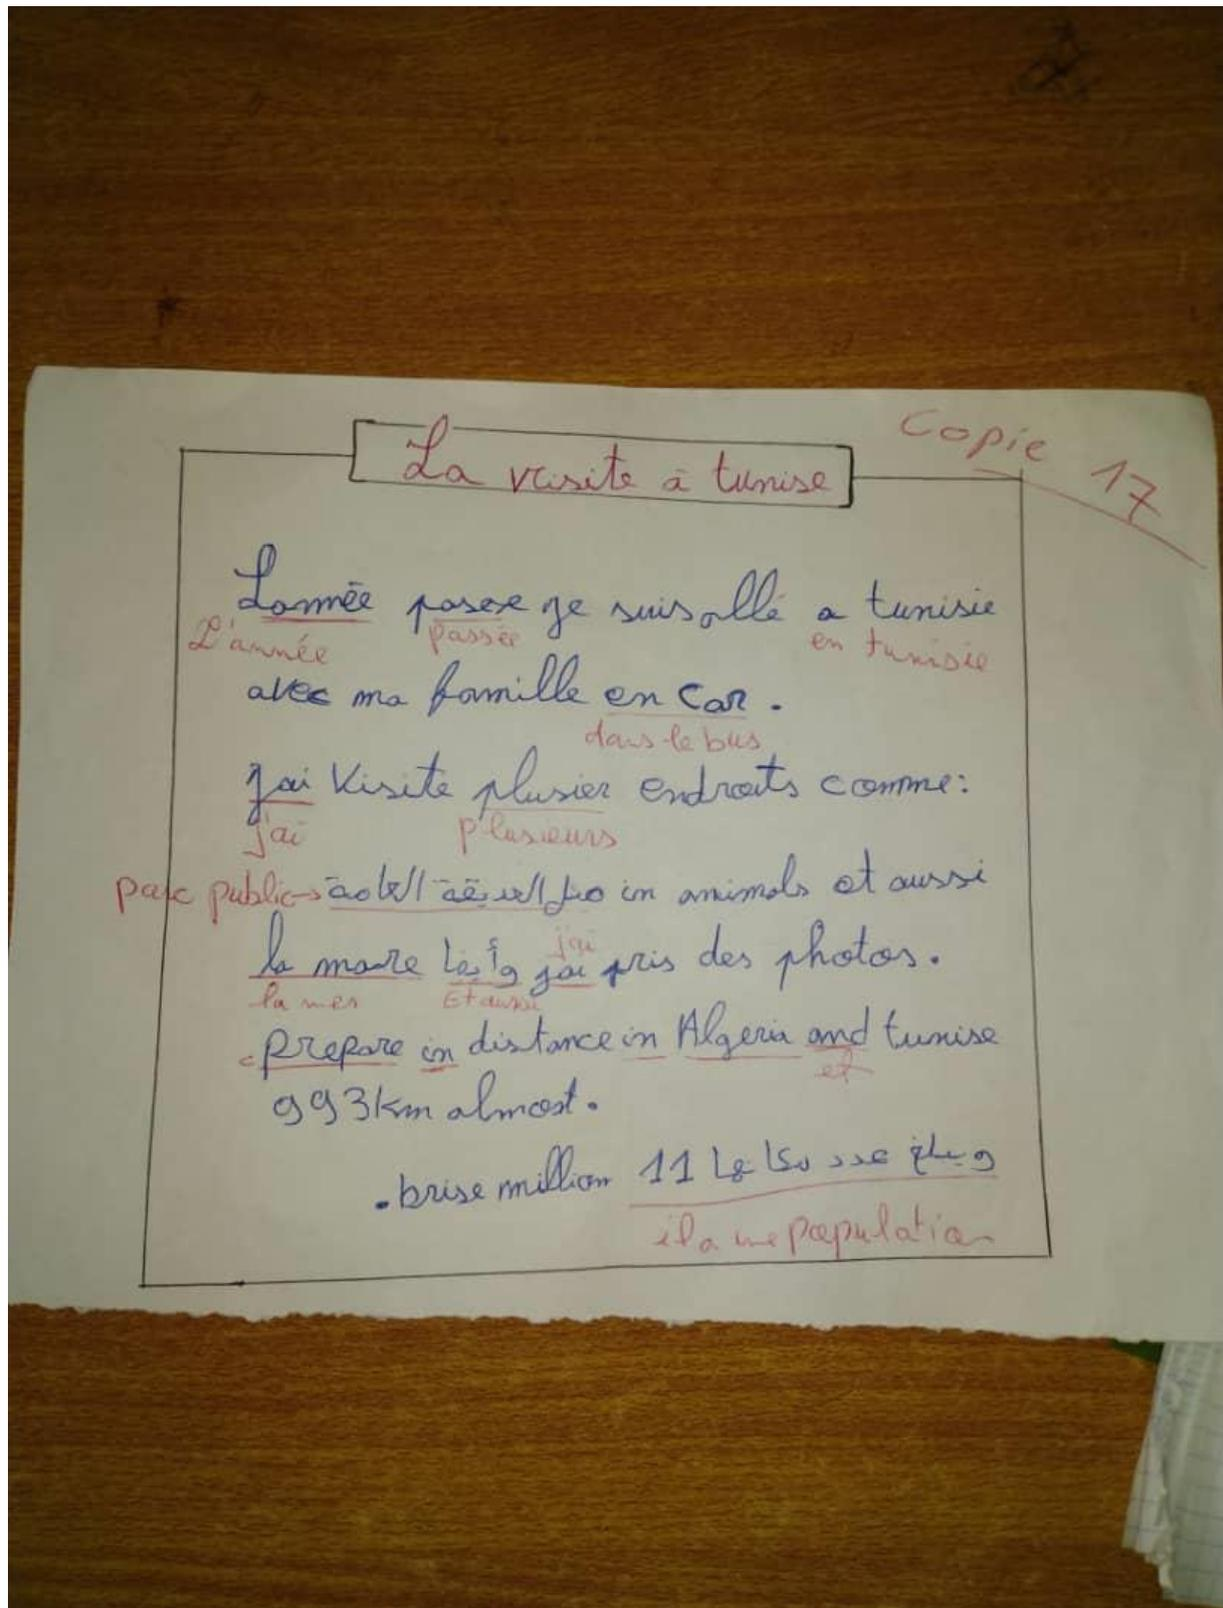 Copie 17
La visite à tunise
Lannée passe je suis allé a tunisie
L'année passée en tunisie
avec ma famille en Car.
dans le bus
jai visite plusier endroits comme:
j'ai plusieurs
parc public → العامة الحديقة مثل in animals et aussi
j'ai
la mare وأيضا jai pris des photos.
la mer Et aussi
prepare in distance in Algeria and tunise
et
993km almost.
.brise million 11 ويبلغ عدد سكانها
il a une population